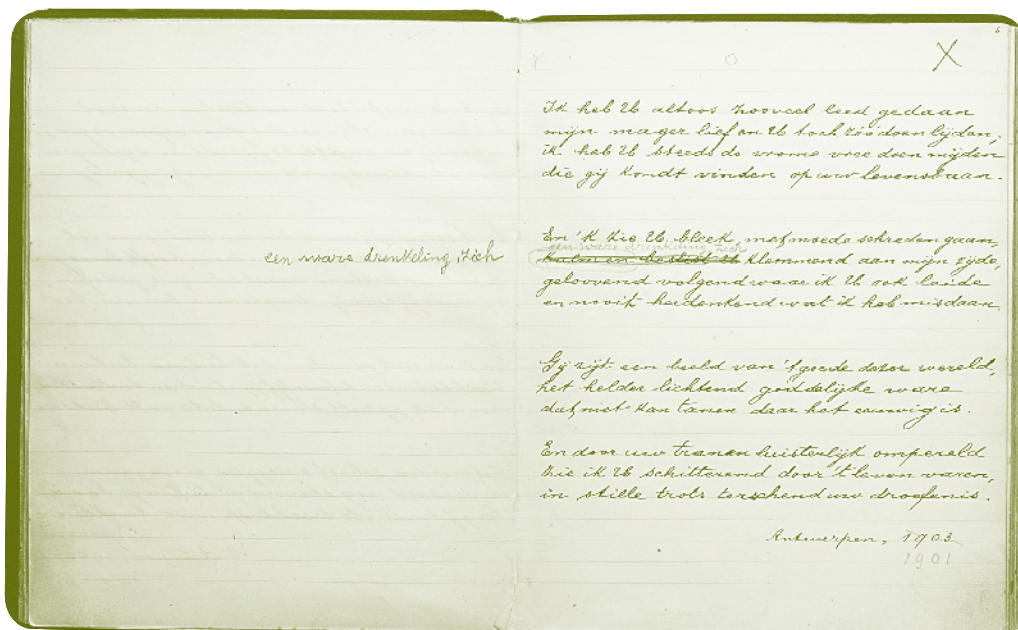 een ware drenkeling, zich
6
X
Ik heb U altoos zooveel leed gedaan
mijn mager lief en U toch zóó doen lijden,
ik heb U steeds de vrome vree doen mijden
die gij kondt vinden op uw levensbaan.
En 'k zie U bleek, met moede schreden gaan,
een ware drenkeling zich
kalm en beslist U klemmend aan mijn zijde,
geloovend volgend waar ik U ook leide
en nooit herdenkend wat ik heb misdaan.
Gij zijt een beeld van 't goede dezer wereld,
het helder lichtend goddelijke ware
dat niet kan tanen daar het eeuwig is.
En door uw tranen luisterlijk ompereld
zie ik U schitterend door 't leven waren,
in stille trots torschend uw droefenis.
Antwerpen, 1903
1901